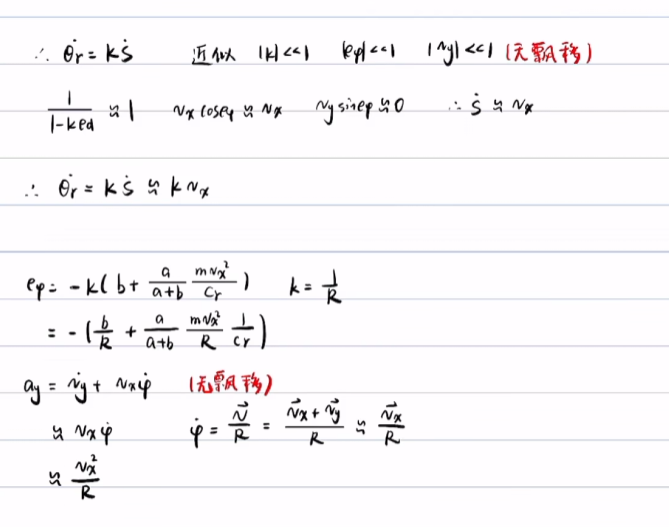 ∴ θ̇r = kṡ 近似 |k|<<1 |eφ|<<1 |vy|<<1 (无飘移)
1/(1-ked) ≈ 1 vx cos eφ ≈ vx vy sin eφ ≈ 0 ∴ ṡ ≈ vx
∴ θ̇r = kṡ ≈ kvx
eφ = -k(b + a/(a+b) mvx²/Cr) k = 1/R
= -(b/R + a/(a+b) mvx²/R 1/Cr)
ay = v̇y + vxφ̇ (无飘移)
≈ vxφ̇ φ̇ = v⃗/R = (v⃗x + v⃗y)/R ≈ v⃗x/R
≈ vx²/R